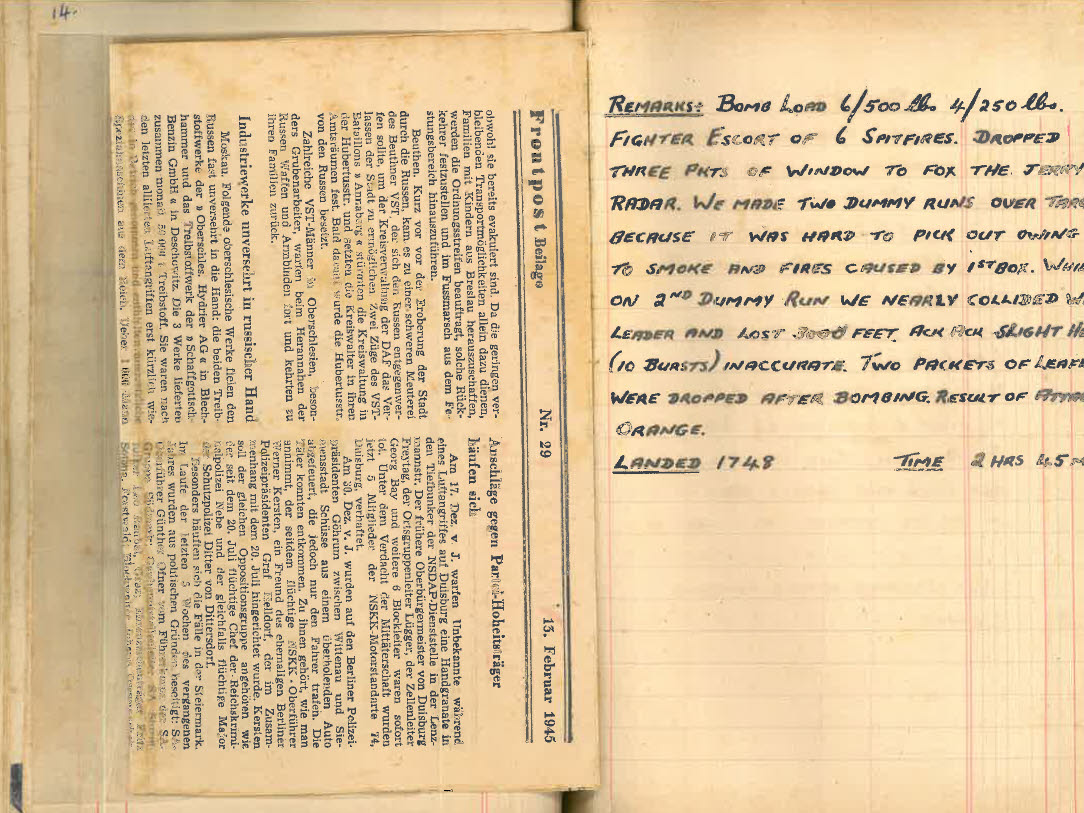 14.
Frontpost Beilage Nr. 29 13. Februar 1945
obwohl sie bereits evakuiert sind. Da die geringen ver-
bleibenden Transportmöglichkeiten allein dazu dienen,
Familien mit Kindern aus Breslau herauszuschaffen,
werden die Ordnungsstreifen beauftragt, solche Rück-
kehrer festzustellen und im Fussmarsch aus dem Fe-
stungsbereich hinauszuführen.
Beuthen. Kurz vor der Eroberung der Stadt
durch die Russen kam es zu einer schweren Meuterei
des Beuthner VST, der sich den Russen entgegenwer-
fen sollte, um der Kreisverwaltung der DAF das Ver-
lassen der Stadt zu ermöglichen. Zwei Züge des VST-
Bataillons »Annaberg« stürmten die Kreiswaltung in
der Hubertusstr. und setzten die Kreiswalter in ihren
Amtsräumen fest. Bald darauf wurde die Hubertusstr.
von den Russen besetzt.
Zahlreiche VST-Männer in Oberschlesien, beson-
ders Grubenarbeiter, warfen beim Herannahen der
Russen Waffen und Armbinden fort und kehrten zu
ihren Familien zurück.
Industriewerke unversehrt in russischer Hand
Moskau. Folgende oberschlesische Werke fielen den
Russen fast unversehrt in die Hand: die beiden Treib-
stoffwerke der »Oberschles. Hydrier AG« in Blech-
hammer und das Treibstoffwerk der »Schaffgotsch-
Benzin GmbH« in Deschowitz. Die 3 Werke lieferten
zusammen monatl. 50 000 t Treibstoff. Sie waren nach
den letzten alliierten Luftangriffen erst kürzlich wie-
Spezialmaschinen aus dem Reich. Ueber 1 000 Mann
Anschläge gegen Partei-Hoheitsträger
häufen sich
Am 17. Dez. v. J. warfen Unbekannte während
eines Luftangriffes auf Duisburg eine Handgranate in
den Tiefbunker der NSDAP-Dienststelle in der Lenz-
mannstr. Der frühere Oberbürgermeister von Duisburg
Freytag, der Ortsgruppenleiter Lagger, der Zellenleiter
Georg Bay und weitere 6 Blockleiter waren sofort
tot. Unter dem Verdacht der Mittäterschaft wurden
jetzt 5 Mitglieder der NSKK-Motorstandarte 74,
Duisburg, verhaftet.
Am 30. Dez. v. J. wurden auf den Berliner Polizei-
präsidenten Göhrum zwischen Wittenau und Sie-
mensstadt Schüsse aus einem überholenden Auto
abgefeuert, die jedoch nur den Fahrer trafen. Die
Täter konnten entkommen. Zu ihnen gehört, wie man
annimmt, der seitdem flüchtige NSKK-Oberführer
Werner Kersten, ein Freund des ehemaligen Berliner
Polizeipräsidenten Graf Helldorf, der im Zusam-
menhang mit dem 20. Juli hingerichtet wurde. Kersten
soll der gleichen Oppositionsgruppe angehören wie
der seit dem 20. Juli flüchtige Chef der Reichskrimi-
nalpolizei Nebe und der gleichfalls flüchtige Major
der Schutzpolizei Ditter von Dittersdorf.
Besonders häuften sich die Fälle in der Steiermark.
Im Laufe der letzten 5 Wochen des vergangenen
Jahres wurden aus politischen Gründen beseitigt: SA-
Oberführer Günther Ofner vom Führerkorps der SA-
REMARKS: BOMB LOAD 6/500 lbs. 4/250 lbs.
FIGHTER ESCORT OF 6 SPITFIRES. DROPPED
THREE PKTS OF WINDOW TO FOX THE JERRY
RADAR. WE MADE TWO DUMMY RUNS OVER TARG
BECAUSE IT WAS HARD TO PICK OUT OWING
TO SMOKE AND FIRES CAUSED BY 1ST BOX. WHI
ON 2ND DUMMY RUN WE NEARLY COLLIDED W
LEADER AND LOST 3000 FEET. ACK ACK SLIGHT H
(10 BURSTS) INACCURATE. TWO PACKETS OF LEAF
WERE DROPPED AFTER BOMBING. RESULT OF ATTA
ORANGE.
LANDED 1748 TIME 2 HRS 45 M